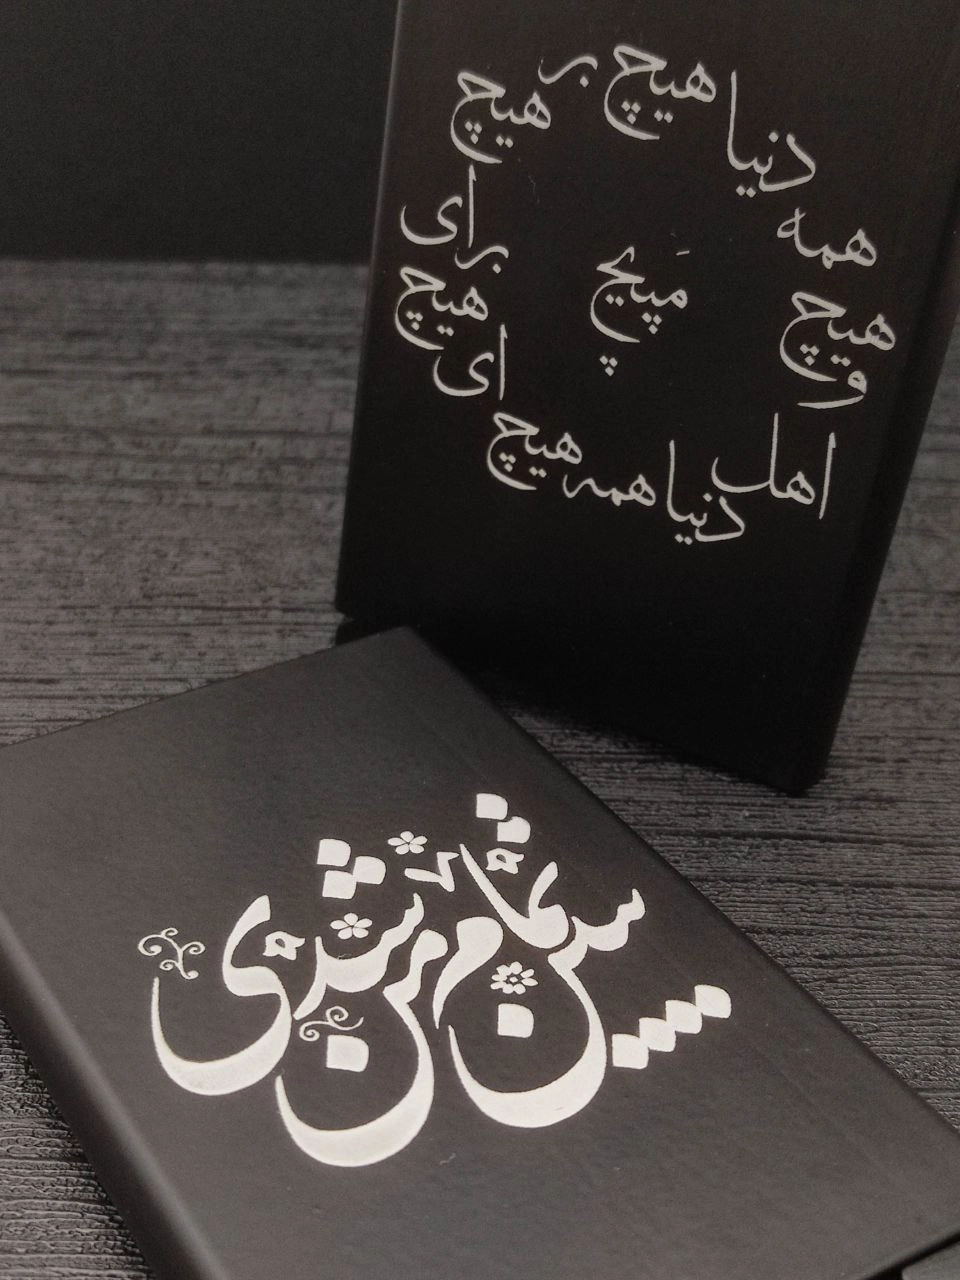 دنیا همه هیچ و اهل دنیا همه هیچ ای هیچ برای هیچ بر هیچ
مَپیچ
تمام من شدی